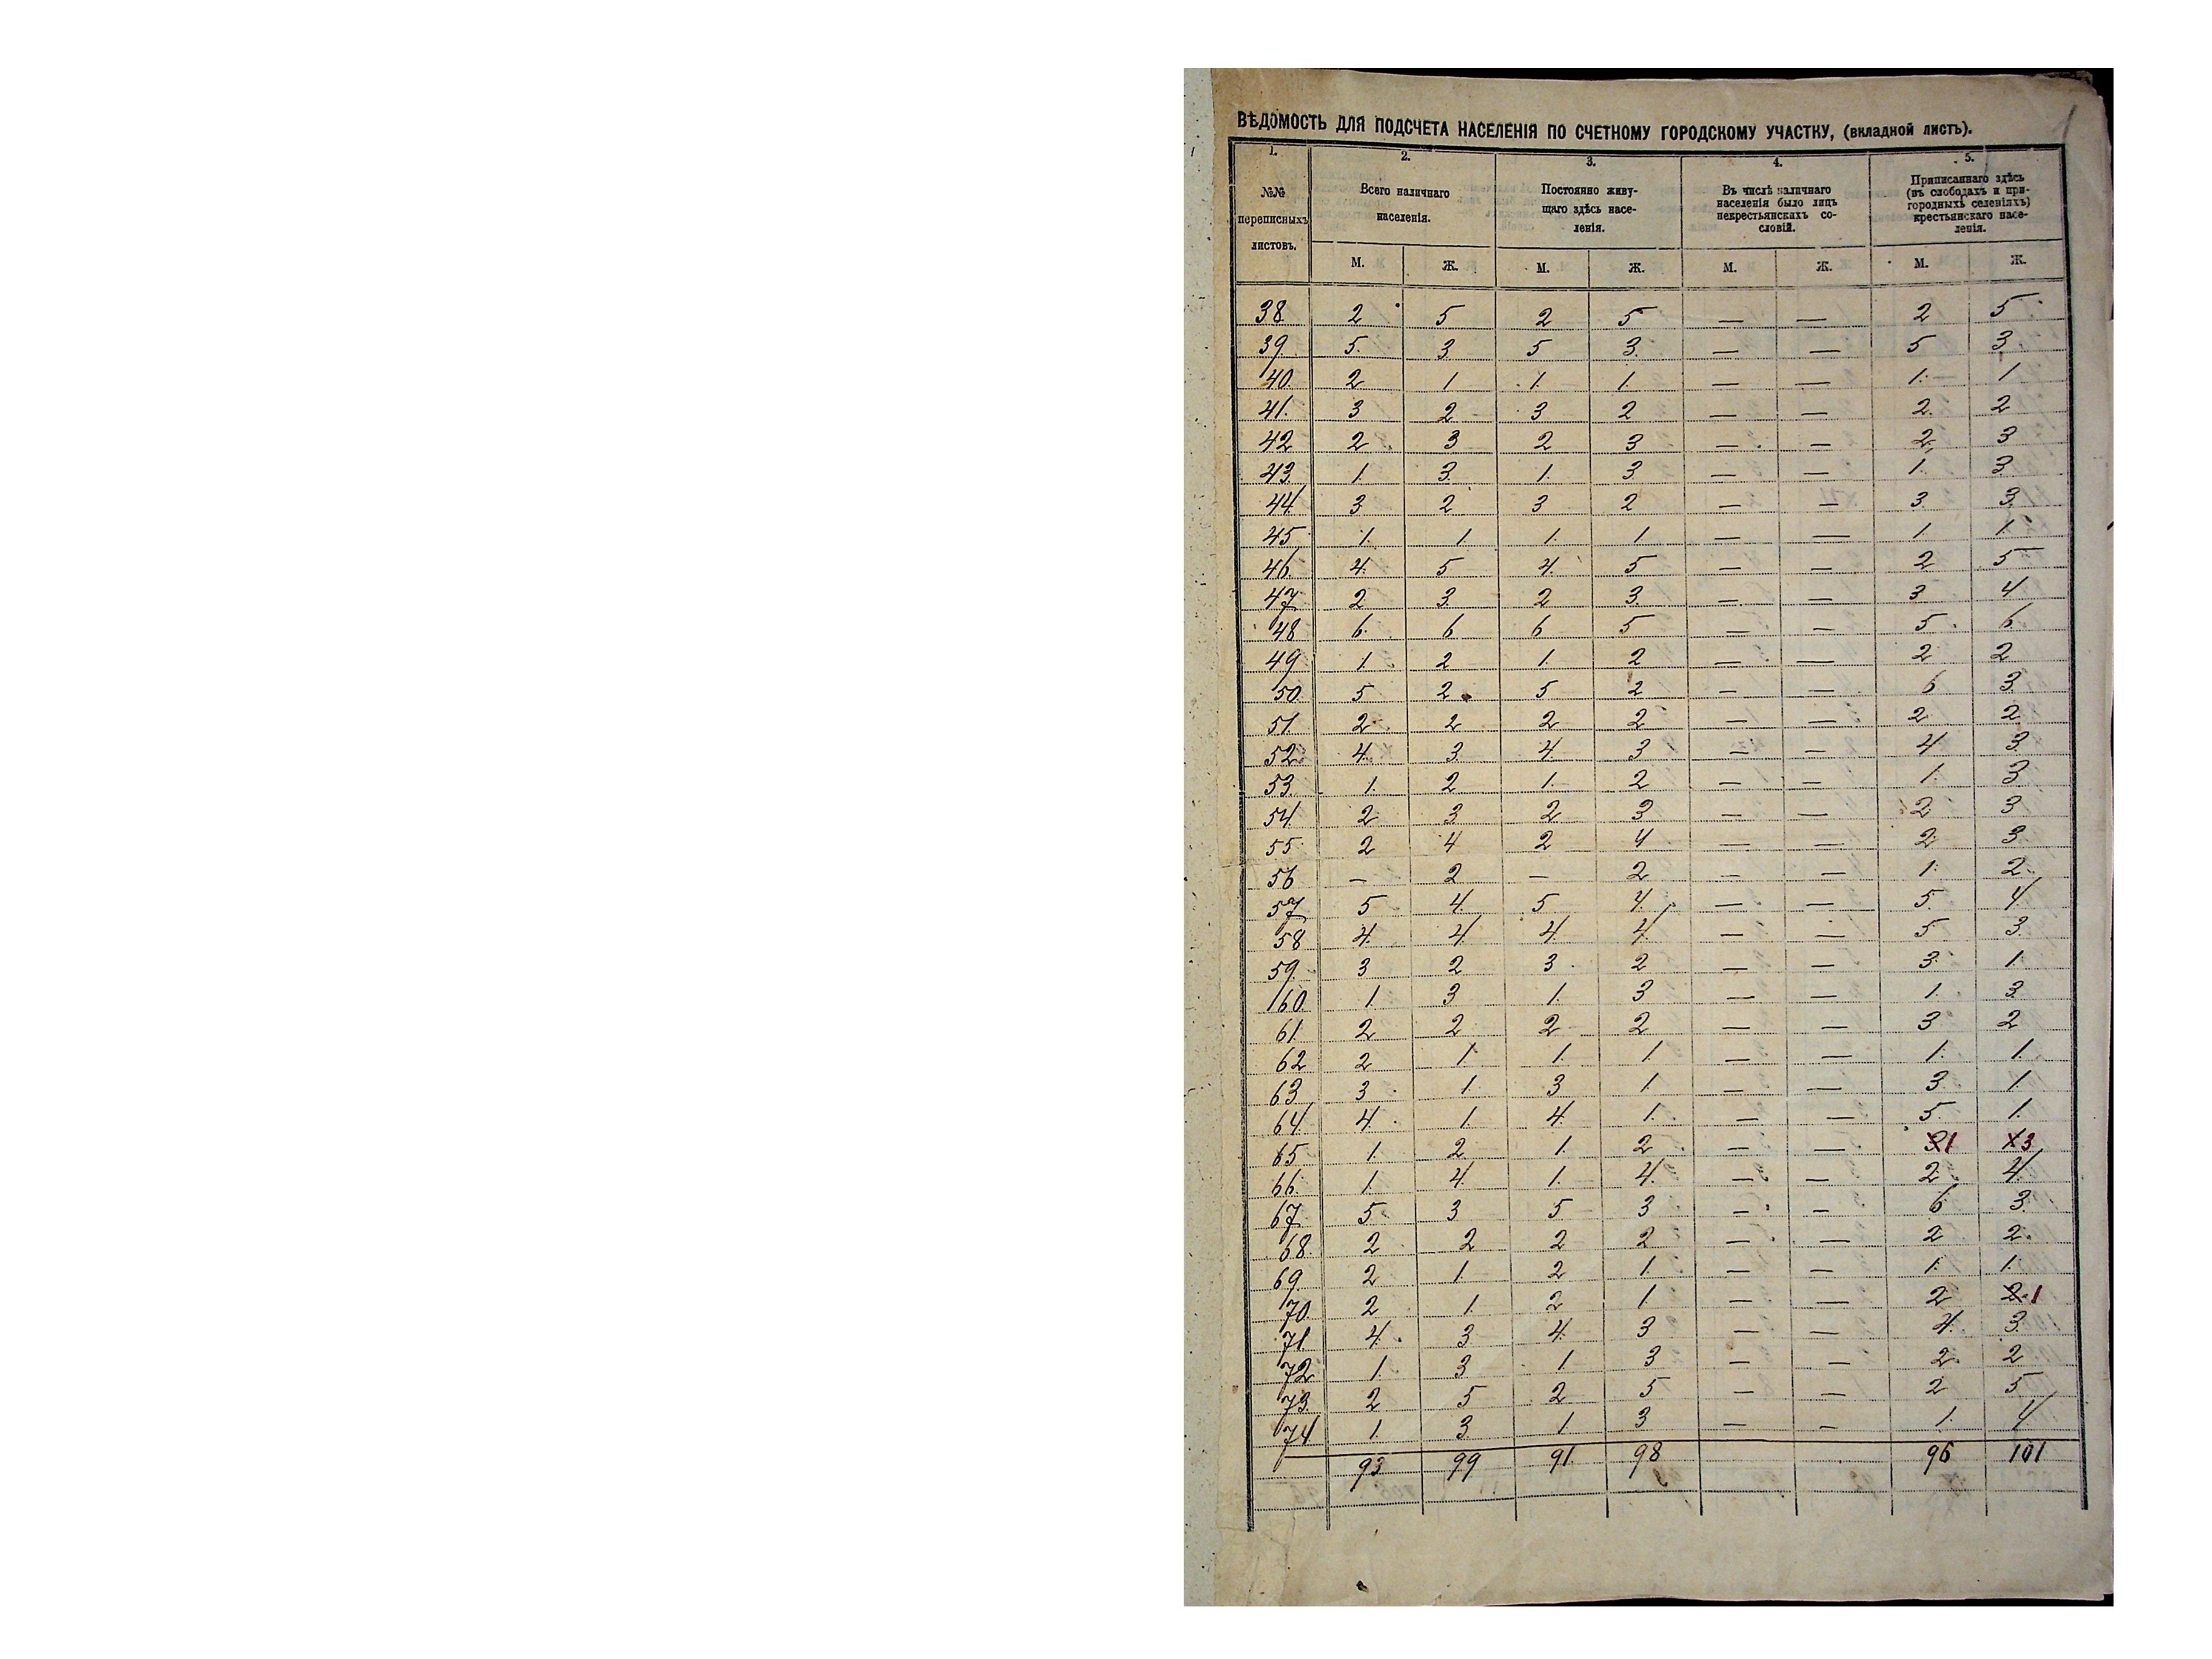 ВѢДОМОСТЬ ДЛЯ ПОДСЧЕТА НАСЕЛЕНІЯ ПО СЧЕТНОМУ ГОРОДСКОМУ УЧАСТКУ, (вкладной листъ).
1. 2. 3. 4. 5.
№№ переписныхъ листовъ.
Всего наличнаго населенія.
Постоянно живу-
щаго здѣсь насе-
ленія.
Въ числѣ наличнаго
населенія было лицъ
некрестьянскихъ со-
словій.
Приписаннаго здѣсь
(въ слободахъ и при-
городныхъ селеніяхъ)
крестьянскаго насе-
ленія.
М. Ж. М. Ж. М. Ж. М. Ж.
38. 2 5 2 5 — — 2 5
39. 5. 3. 5 3. — — 5 3.
40. 2 1 1. 1. — — 1. 1.
41. 3 2 3 2 — — 2. 2
42 2 3 2 3 — — 2, 3
43. 1. 3. 1. 3 — — 1. 3.
44. 3 2 3 2 — — 3. 3.
45 1. 1 1. 1 — — 1 1.
46. 4. 5 4. 5 — — 2 5
47. 2. 3. 2 3. — — 3 4
48 6. 6 6 5 — — 5. 6.
49 1 2 1. 2 — — 2 2
50. 5 2 5 2 — — 6 3.
51. 2 2 2 2 — — 2 2
52 4. 3. 4. 3 — — 4 3.
53. 1. 2 1. 2 — — 1. 3
54. 2 3 2 3 — — 2 3
55 2 4 2 4 — — 2. 3.
56 — 2 — 2 — — 1. 2.
57 5 4. 5 4. — — 5. 4.
58 4. 4. 4. 4. — — 5 3.
59. 3 2 3. 2 — — 3. 1.
60. 1. 3 1. 3 — — 1. 3.
61. 2 2 2 2 — — 3 2
62 2 1. 1. 1. — — 1. 1.
63 3 1. 3 1. — — 3 1.
64. 4. 1. 4. 1. — — 5. 1.
65 1. 2 1. 2 — — 1 3
66. 1. 4. 1. 4. — — 2. 4.
67 5 3 5 3 — — 6 3.
68. 2 2 2 2 — — 2 2.
69. 2 1. 2 1. — — 1. 1.
70. 2 1. 2 1. — — 2 2. 1
71. 4. 3 4. 3 — — 4. 3.
72 1. 3 1. 3 — — 2. 2
73. 2 5 2 5 — — 2 5
74. 1. 3. 1 3 — — 1. 4
93 99 91 98 96 101